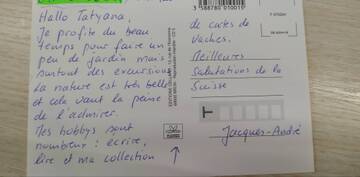 Hallo Tatyana,
Je profite du beau
temps pour faire un
peu de jardin mais
surtout des excursions
La nature est très belle
et cela vaut la peine
de l'admirer.
Mes hobbys sont
nombreux : écrire,
lire et ma collection
de cartes de
vaches.
Meilleures
salutations de la
Suisse
Jacques-André